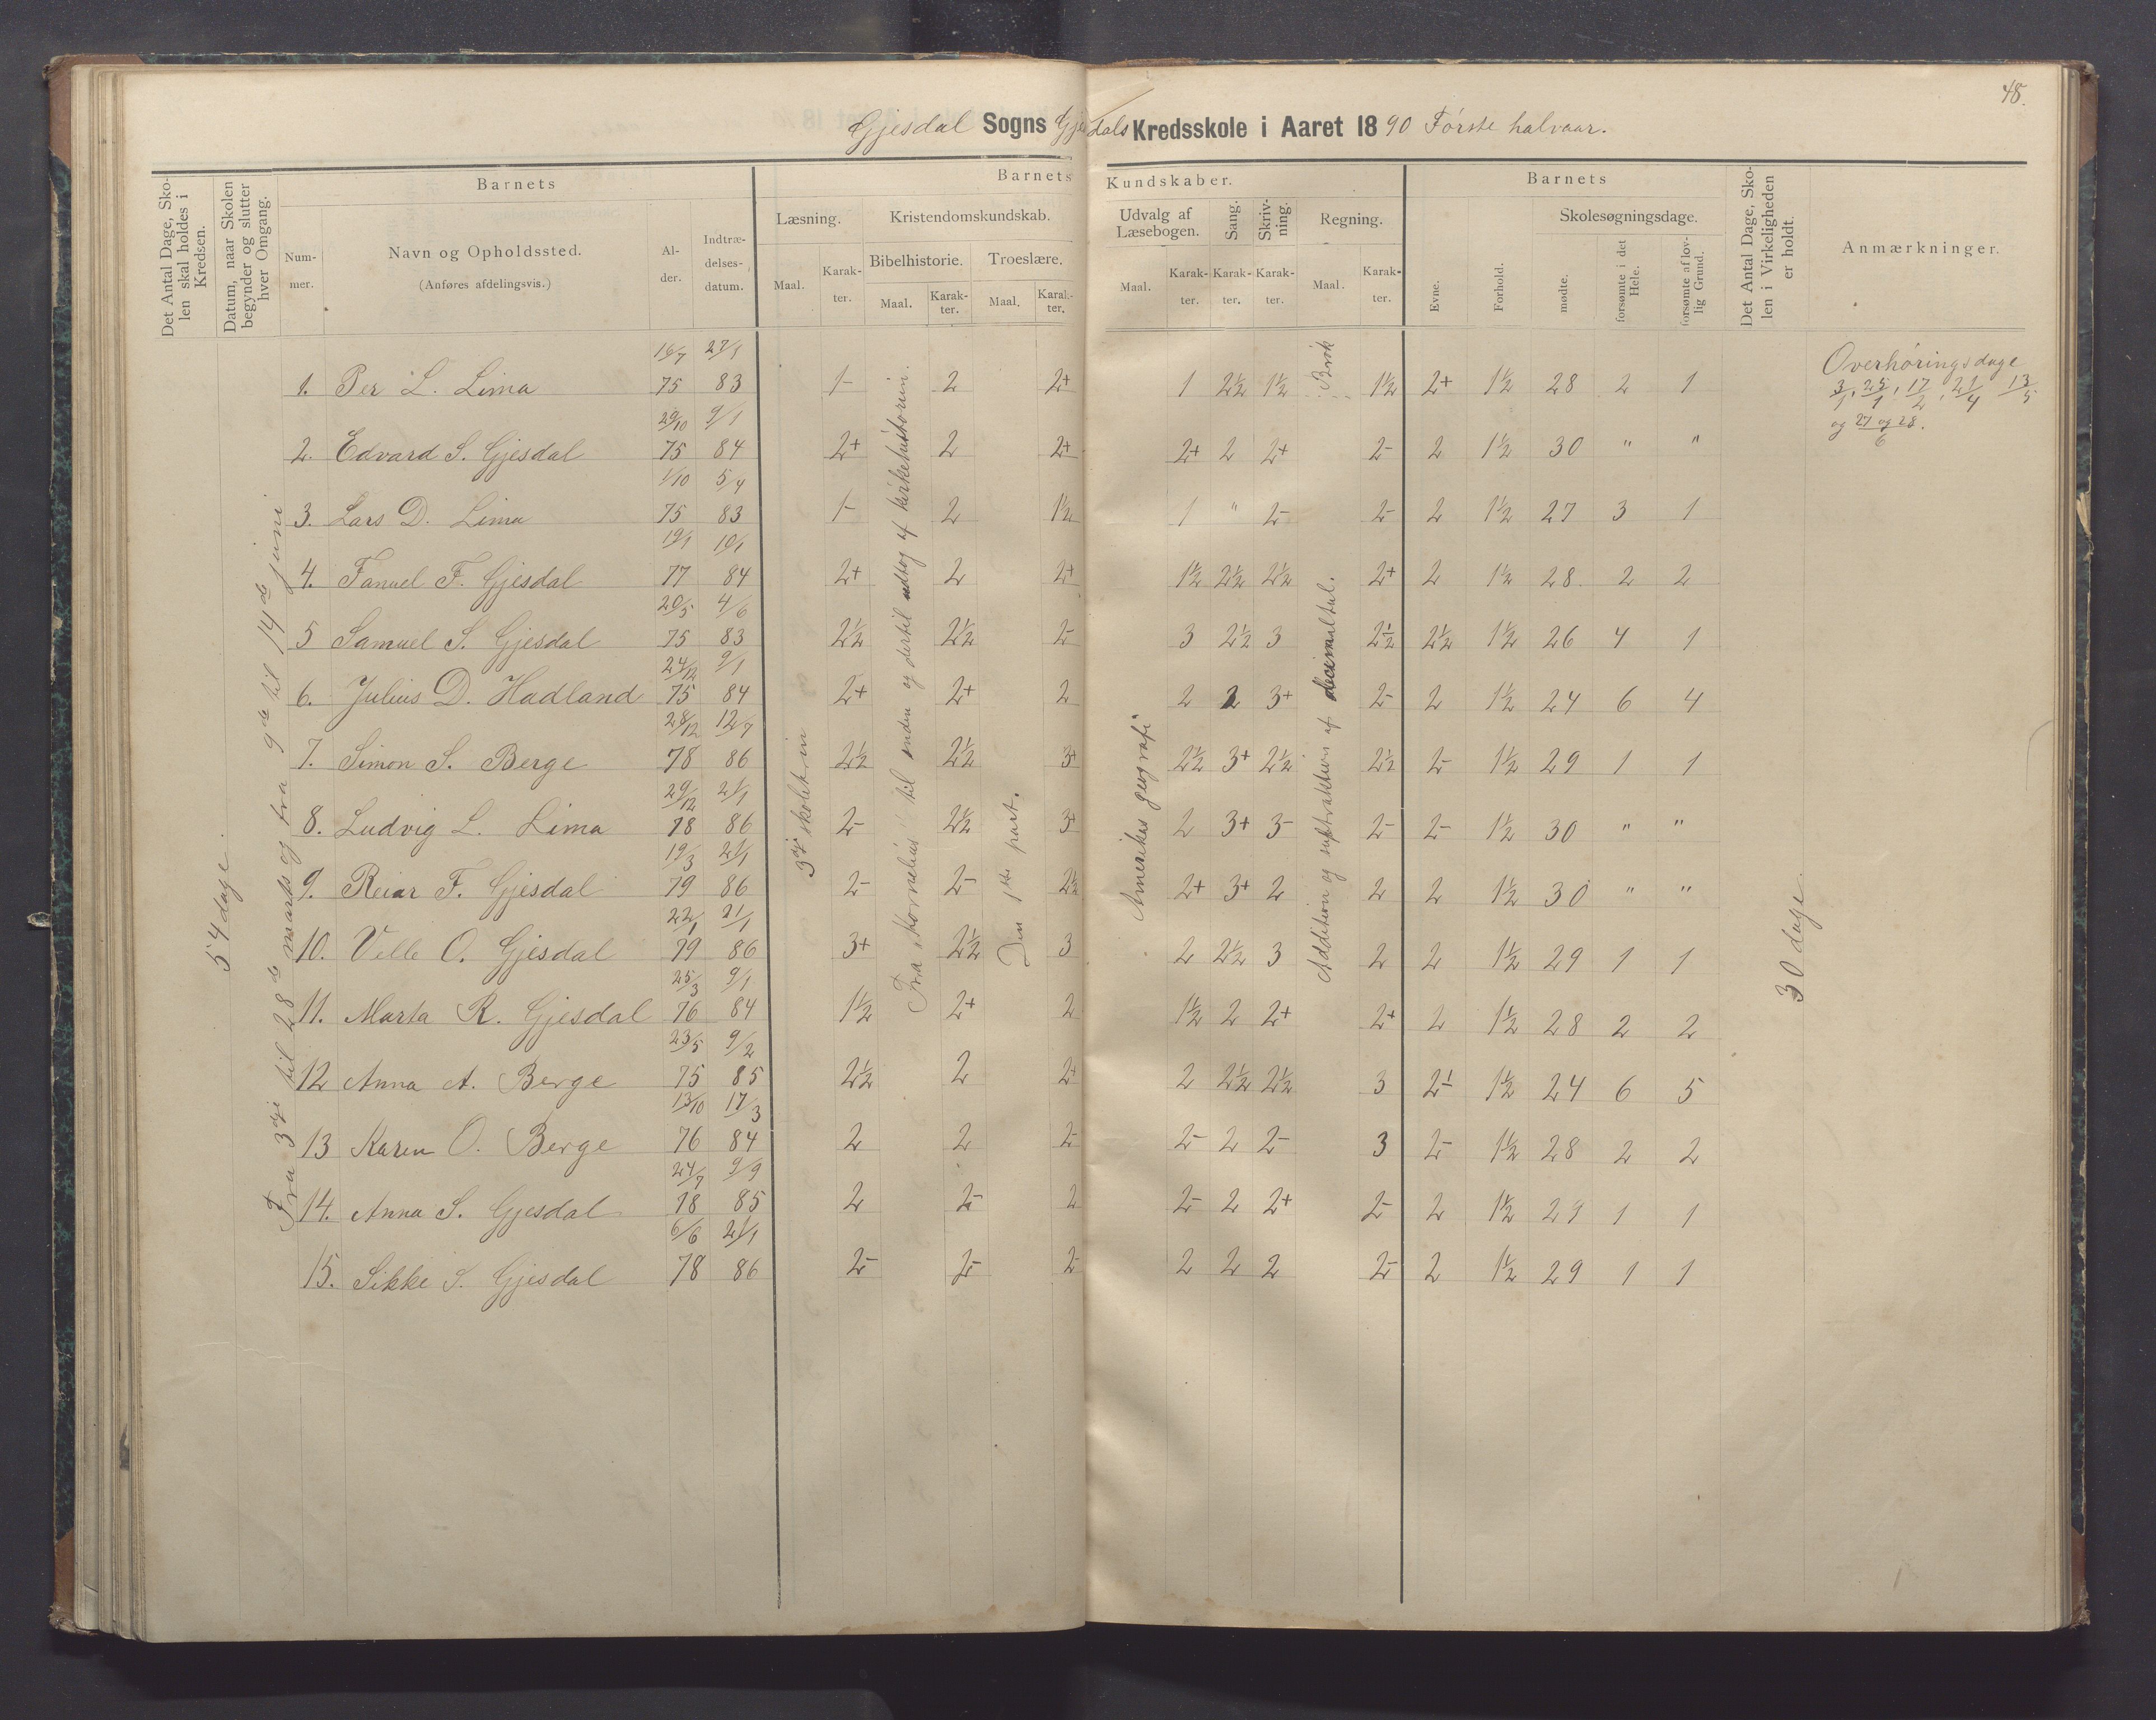 48.
Gjesdal Sogns Gjesdals Kredsskole i Aaret 1890 Første halvaar.
Det Antal Dage, Skolen skal holdes i Kredsen.
Datum, naar Skolen begynder og slutter hver Omgang.
Barnets
Nummer.
Navn og Opholdssted.
(Anføres afdelingsvis.)
Alder.
Indtrædelsesdatum.
Barnets Kundskaber.
Læsning.
Maal.
Karakter.
Kristendomskundskab.
Bibelhistorie.
Maal.
Karakter.
Troeslære.
Maal.
Karakter.
Udvalg af Læsebogen.
Maal.
Karakter.
Sang.
Karakter.
Skrivning.
Karakter.
Regning.
Maal.
Karakter.
Barnets
Evne.
Forhold.
Skolesøgningsdage.
mødte.
forsømte i det Hele.
forsømte af lovlig Grund.
Det Antal Dage, Skolen i Virkeligheden er holdt.
Anmærkninger.
54 dage.
Fra 3dje til 28de marts og fra 9de til 14de juni
3dje skoletrin
Fra "Kornelius" til enden og dertil udtog af kirkehistorien.
Den 1ste part.
Amerikas geografi
Brøk
Addition og suptraktion af decimaltal.
30 dage.
Overhøringsdage
3/1, 25/1, 17/2, 21/4 13/5
og 27 og 28/6.
1. Per L. Lima 16/7 75 27/1 83 1- 2 2+ 1 2½ 1½ 1½ 2+ 1½ 28 2 1
2. Edvard S. Gjesdal 29/10 75 9/1 84 2+ 2 2+ 2+ 2 2+ 2- 2 1½ 30 " "
3. Lars D. Lima 1/10 75 5/4 83 1- 2 1½ 1 " 2- 2- 2 1½ 27 3 1
4. Fanuel F. Gjesdal 19/1 77 10/1 84 2+ 2 2+ 1½ 2½ 2½ 2+ 2 1½ 28 2 2
5 Samuel S. Gjesdal 20/5 75 4/6 83 2½ 2½ 2- 3 2½ 3 2½ 2½ 1½ 26 4 1
6. Julius D. Hadland 24/12 75 9/1 84 2+ 2+ 2 2 2 3+ 2- 2 1½ 24 6 4
7. Simon S. Berge 28/12 78 12/7 86 2½ 2½ 3+ 2½ 3+ 2½ 2½ 2- 1½ 29 1 1
8. Ludvig L. Lima 29/12 78 21/1 86 2- 2½ 3+ 2 3+ 3- 2- 2- 1½ 30 " "
9. Reiar F. Gjesdal 19/3 79 21/1 86 2- 2- 2½ 2+ 3+ 2 2 2 1½ 30 " "
10. Velle O. Gjesdal 22/1 79 21/1 86 3+ 2½ 3 2 2½ 3 2 2 1½ 29 1 1
11. Marta R. Gjesdal 25/3 76 9/1 84 1½ 2+ 2 1½ 2 2+ 2+ 2 1½ 28 2 2
12 Anna A. Berge 23/5 75 9/2 85 2½ 2 2+ 2 2½ 2½ 3 2- 1½ 24 6 5
13 Karen O. Berge 13/10 76 17/3 84 2 2 2- 2- 2 2- 3 2- 1½ 28 2 2
14. Anna S. Gjesdal 24/7 78 9/9 85 2 2- 2 2- 2 2+ 2- 2 1½ 29 1 1
15. Sikke S. Gjesdal 6/6 78 21/1 86 2- 2- 2- 2 2 2 2- 2 1½ 29 1 1